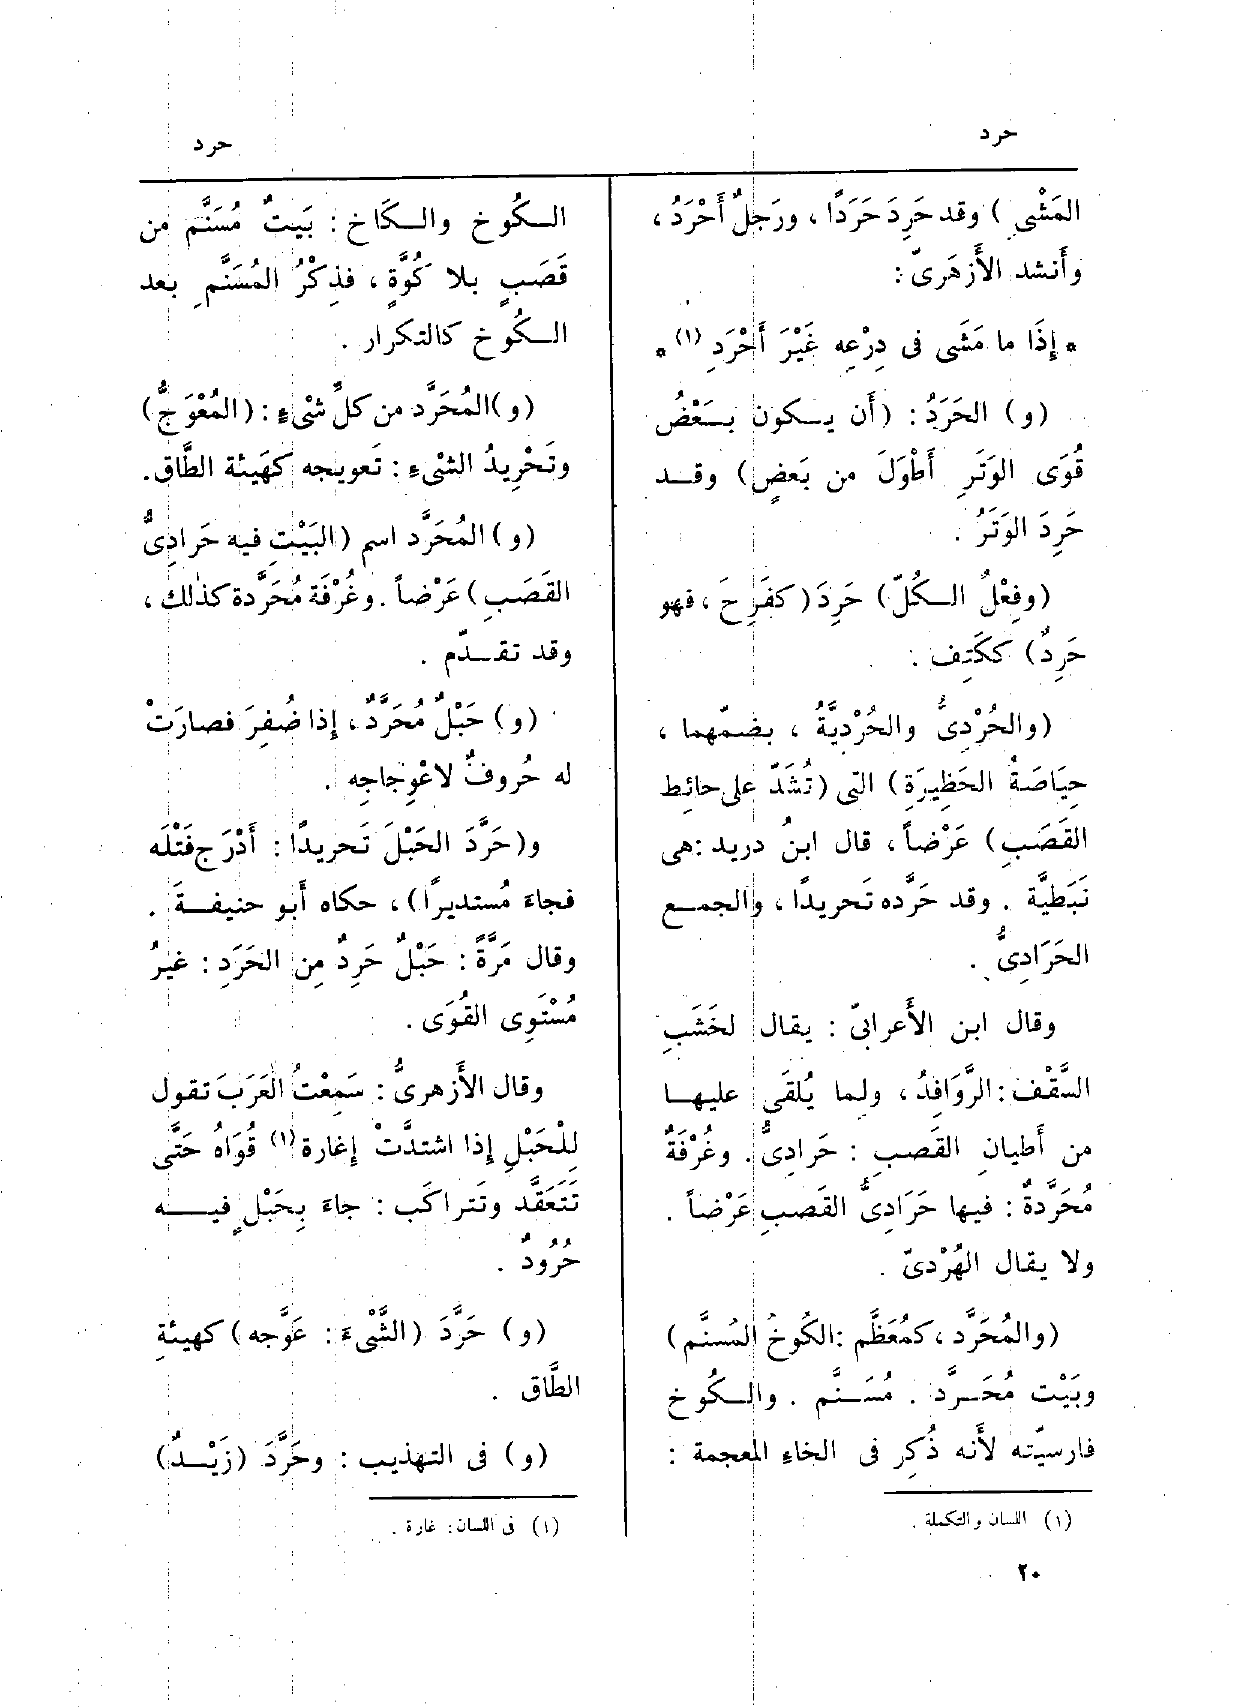 حرد
حرد
المَشْىِ ) وقد حَرِدَ حَرَدًا ، ورَجلٌ أَحْرَدُ ،
وأَنشد الأَزهَرىّ :
* إِذَا ما مَشَى فى دِرْعِه غَيْرَ أَحْرَدِ (١) *
(و) الحَرَدُ : (أَن يــكون بــعْضُ
قُوَى الوَتَرِ أَطْوَلَ من بَعضٍ) وقــد
حَرِدَ الوَتَرُ .
(وفِعْلُ الــكُلّ) حَرِدَ (كفَرِحَ ، فهو
حَرِدٌ) ككَتِف .
(والحُرْدِىُّ والحُرْدِيَّةُ ، بضمّهما ،
حِيَاصَةُ الحَظِيرَةِ) التى (تُشَدّ على حائط
القَصَبِ) عَرْضاً ، قال ابنُ دريد :هى
نَبَطِيَّة . وقد حَرَّده تَحريدًا ، والجمــع
الحَرَادِىُّ .
وقال ابن الأَعرابىّ : يقال لخَشَبِ
السَّقْف : الرَّوَافِدُ ، ولما يُلقَى عليهــا
من أَطيانِ القَصبِ : حَرادِىُّ . وغُرْفَةٌ
مُحَرَّدةٌ : فيها حَرَادِىُّ القَصبِ عَرْضاً .
ولا يقال الهُرْدىّ .
(والمُحَرَّد ، كمُعَظَّم :الكُوخُ المُسنَّم)
وبَيْت مُحَــرَّد . مُسَــنَّم . والــكُوخ
فارسيّته لأَنه ذُكِر فى الخاءِ المعجمة :
(١) اللسان والتكملة .
٢٠
الــكُوخ والــكَاخ : بَيتٌ مُسَنَّم من
قَصَبٍ بلا كُوَّةٍ ، فذِكْرُ المُسَنَّمِ بعد
الــكُوخ كالتكرار .
(و)المُحَرَّد من كلِّ شىْءٍ : (المُعْوَجُّ)
وتَحْرِيدُ الشىْءِ : تَعويجه كهَيئة الطَّاق.
(و) المُحَرَّد اسم (البَيْتِ فيه حَرادِىُّ
القَصَبِ) عَرْضاً .وغُرْفَة مُحَرَّدة كذٰلك ،
وقد تقــدّم .
(و) حَبْلٌ مُحَرَّدٌ ، إِذا ضُفِرَ فصارَتْ
له حُروفٌ لاعْوِجاجِه .
و(حَرَّدَ الحَبْلَ تَحريدًا : أَدْرَج فَتْلَه
فجاءَ مُستديرًا) ، حكاه أَبو حنيفــةَ .
وقال مَرَّةً : حَبْلٌ حَرِدٌ مِن الحَرَدِ : غيرُ
مُسْتَوِى القُوَى .
وقال الأَزهرىُّ : سَمِعْتُ العَرَبَ تقول
لِلْحَبْلِ إِذا اشتدَّتْ إِغارة (١) قُوَاهُ حَتَّى
تَتَعَقَّد وتَتراكَب : جاءَ بِحَبْلٍ فيــه
حُرُودٌ .
(و) حَرَّدَ (الشَّىْءَ : عَوَّجه) كهيئةِ
الطَّاق .
(و) فى التهذيب : وحَرَّدَ (زَيْــدٌ)
(١) فى اللسان : غارة .